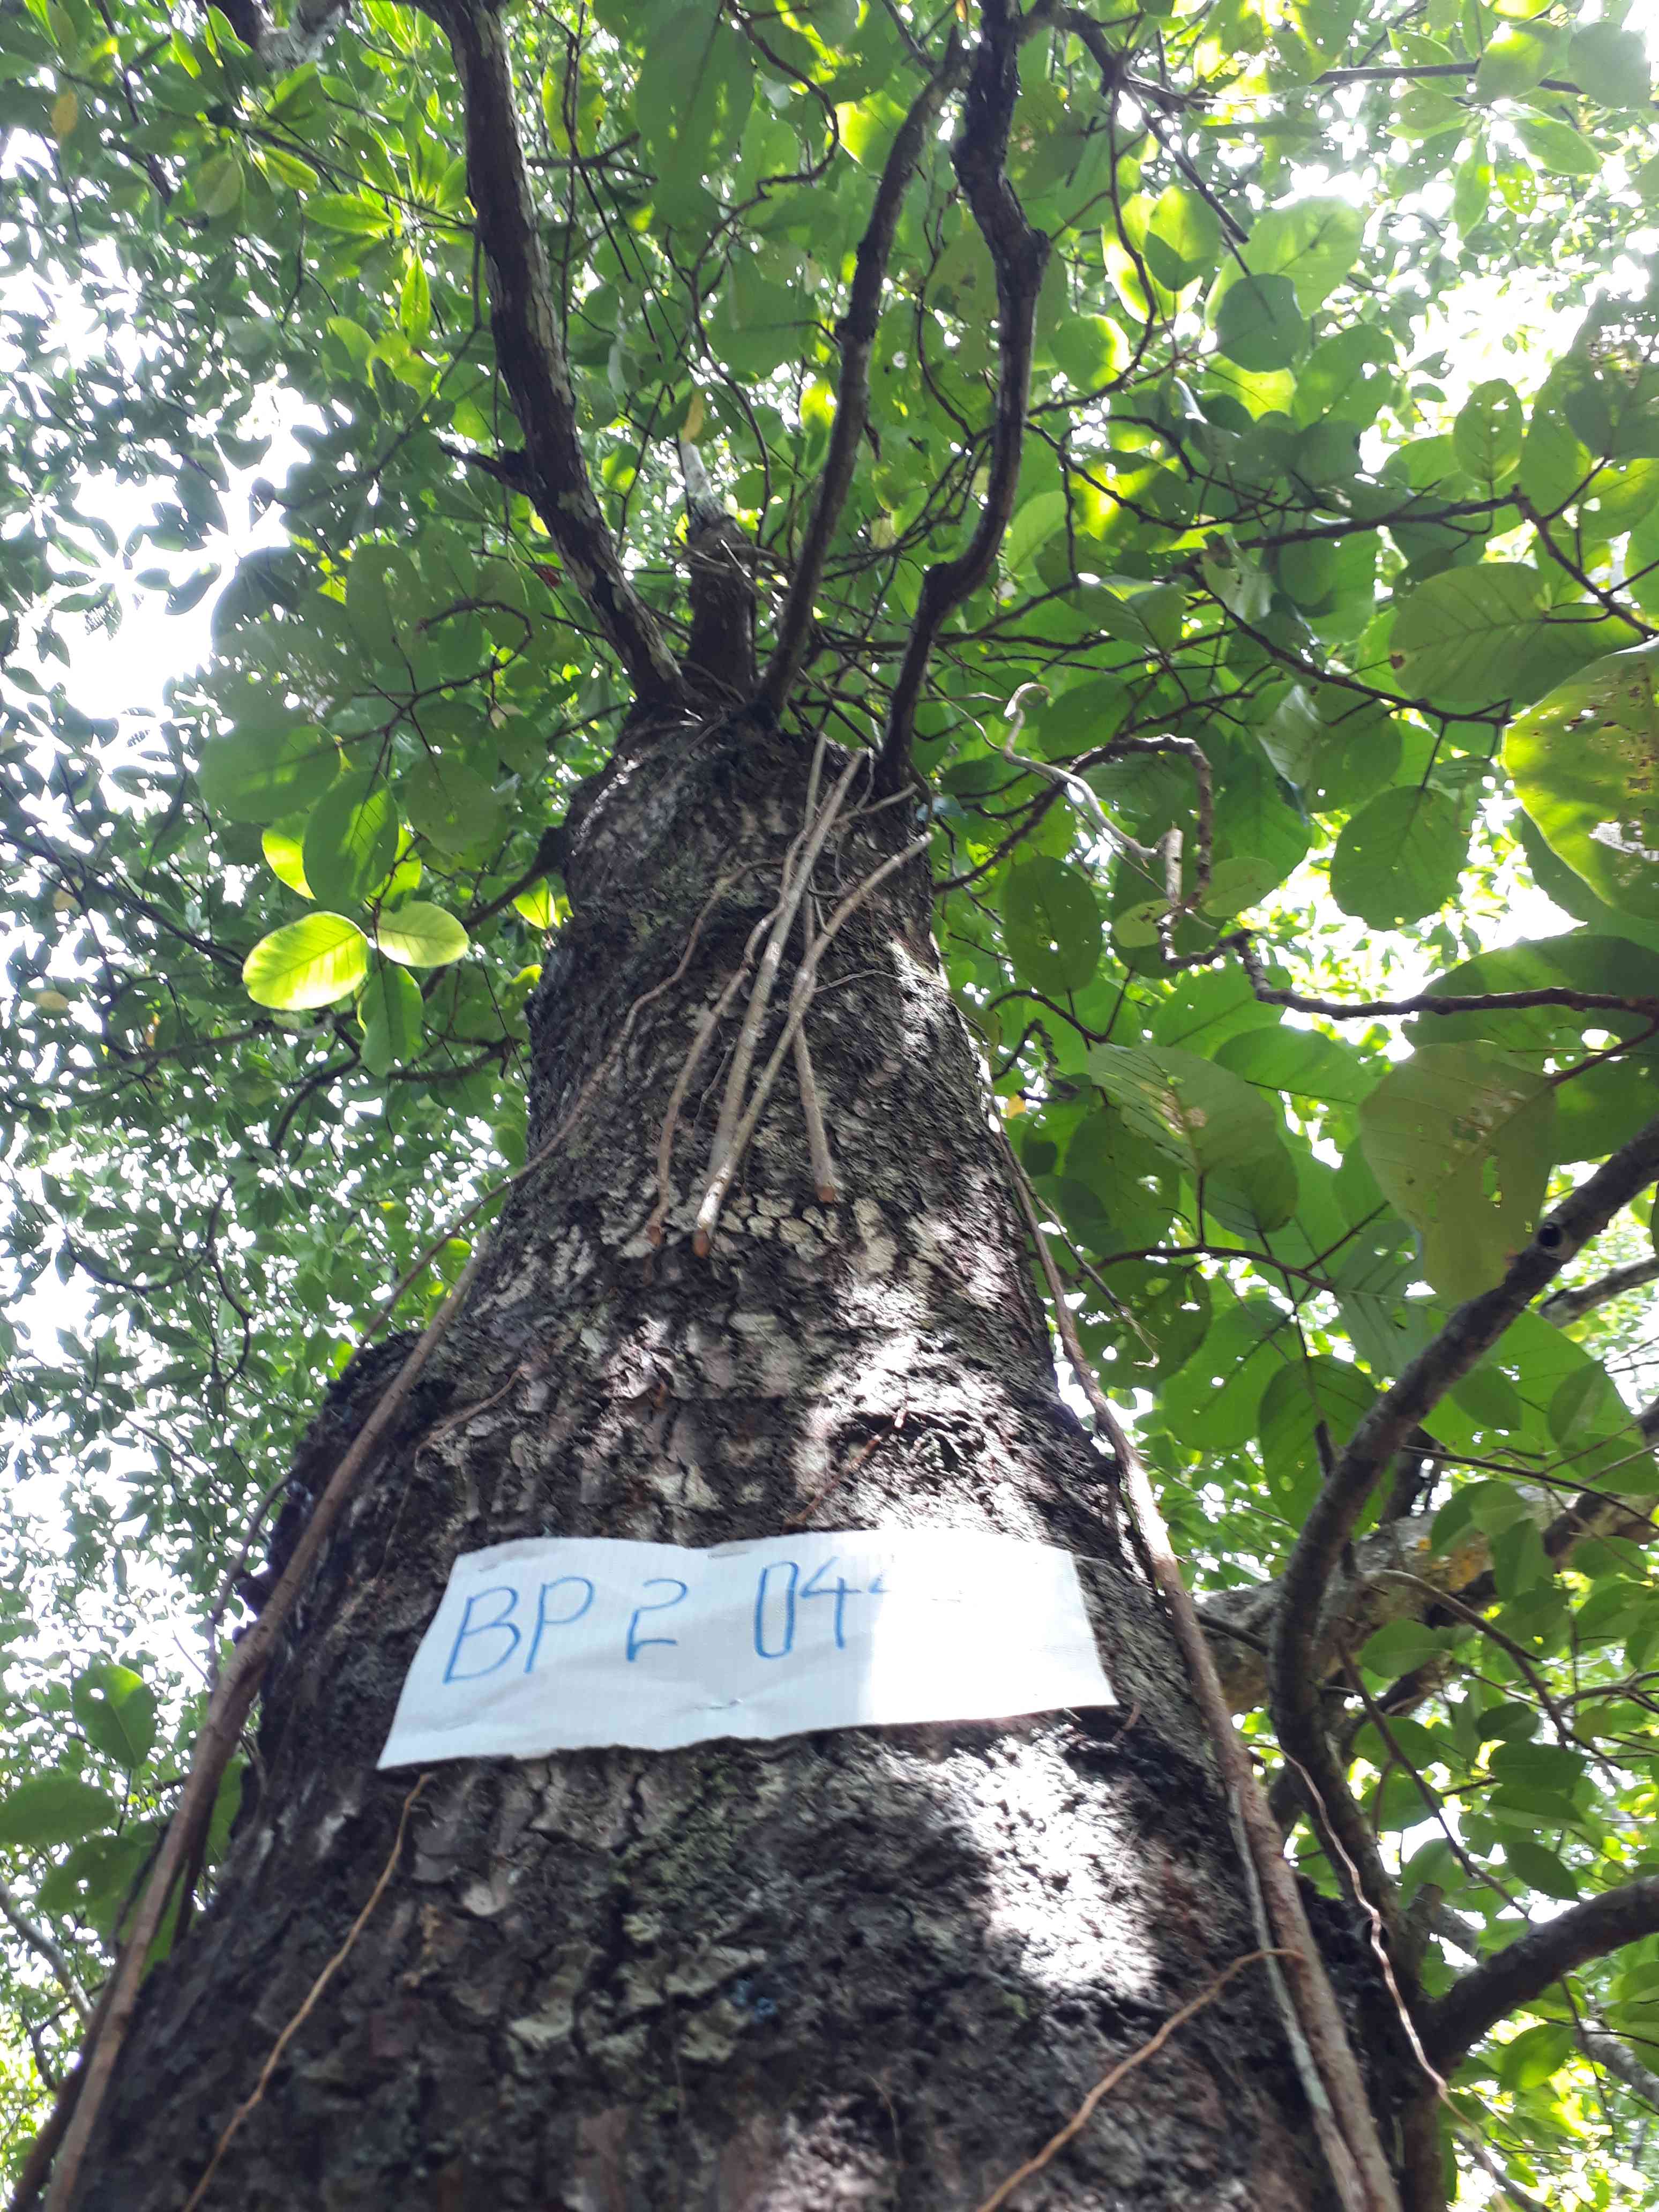 BP 2 04